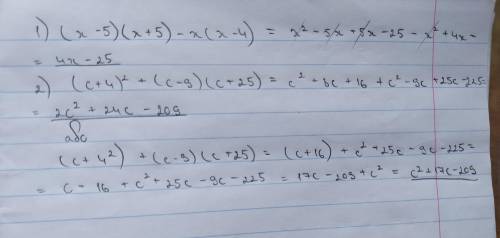 1) (x - 5)(x + 5) - x(x - 4) = x² - 5x + 5x - 25 - x² + 4x =
= 4x - 25
2) (c + 4)² + (c - 9)(c + 25) = c² + 8c + 16 + c² - 9c + 25c - 225 =
= 2c² + 24c - 209
або
(c + 4²) + (c - 9)(c + 25) = (c + 16) + c² + 25c - 9c - 225 =
= c - 16 + c² + 25c - 9c - 225 = 17c - 209 + c² = c² + 17c - 209